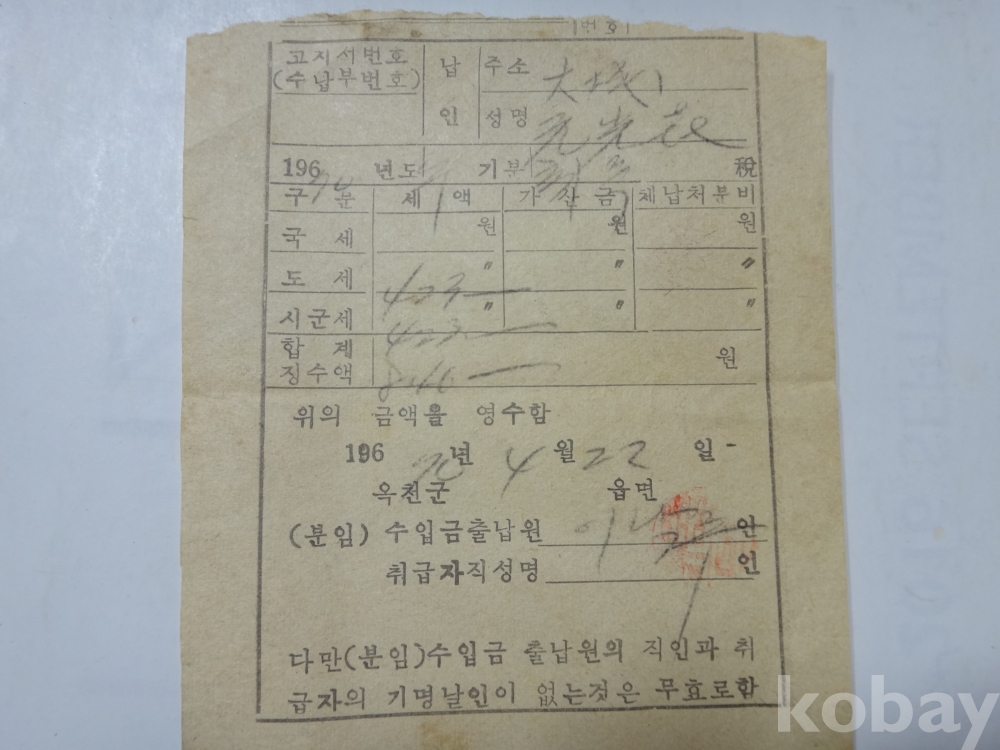 번호
고지서번호 납 주소 大
(수납부번호) 인 성명
196 년도 기분 稅
구분 세액 가산금 체납처분비
국세 원 원 원
도세 423 〃 〃 〃
시군세 423 〃 〃 〃
합계 징수액 846 원
위의 금액을 영수함
196 70년 4월 22일
옥천군 읍면
(분임) 수입금출납원 인
취급자직성명 인
다만(분임)수입금 출납원의 직인과 취
급자의 기명날인이 없는것은 무효로함
kobay